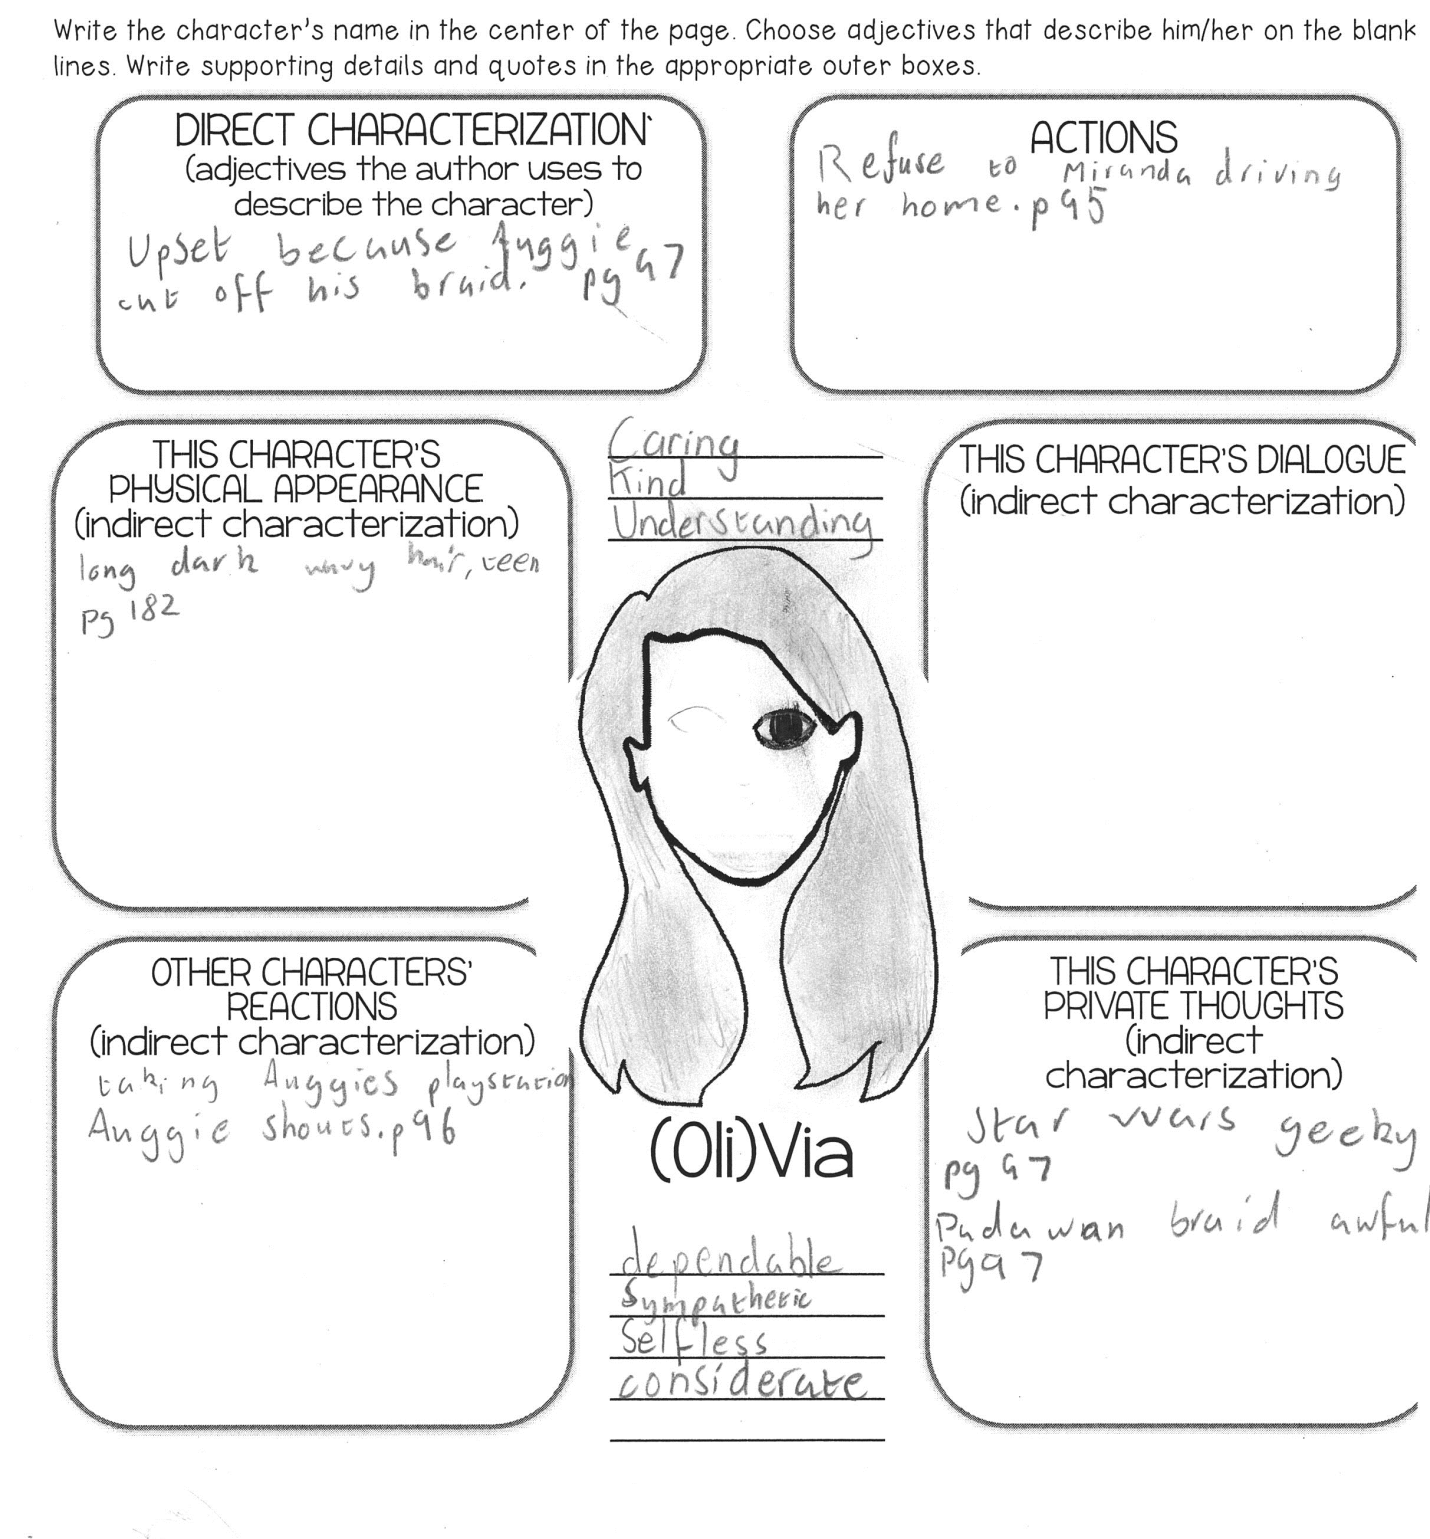 Write the character's name in the center of the page. Choose adjectives that describe him/her on the blank
lines. Write supporting details and quotes in the appropriate outer boxes.
DIRECT CHARACTERIZATION
(adjectives the author uses to
describe the character)
Upset because Auggie
cut off his braid. pg 97
ACTIONS
Refuse to Miranda driving
her home. p95
THIS CHARACTER'S
PHYSICAL APPEARANCE
(indirect characterization)
long dark wavy hair, teen
pg 182
Caring
Kind
Understanding
THIS CHARACTER'S DIALOGUE
(indirect characterization)
OTHER CHARACTERS'
REACTIONS
(indirect characterization)
taking Auggies playstation
Auggie shouts. p96
(Oli)Via
dependable
Sympathetic
Selfless
considerate
THIS CHARACTER'S
PRIVATE THOUGHTS
(indirect
characterization)
Star wars geeky
pg 97
Padawan braid awful
pg 97